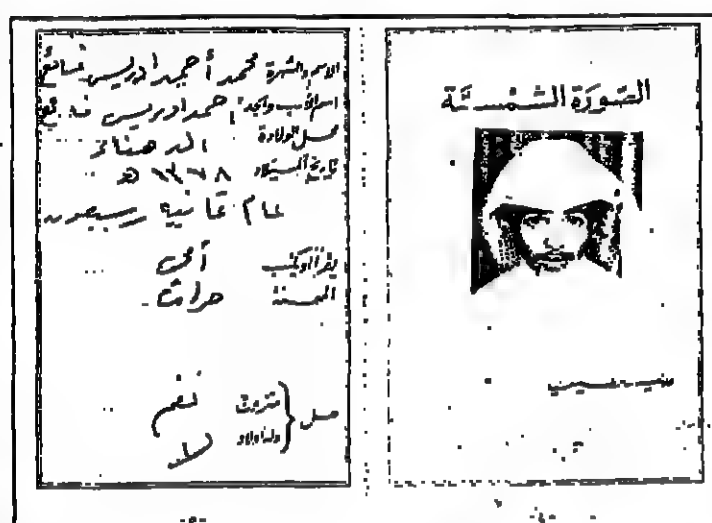 الصورة الشمسية
الاسم والشهرة محمد أحمد ادريس
اسم الأب والجد احمد ادريس
محل الولادة الدهناء
تاريخ الميلاد ١٣٧٨ هـ
عام ثمانية وسبعون
يقرأ أو يكتب أمي
المهنة حراث
هل
متزوج نعم
وله أولاد لا
-٤-
-٥-